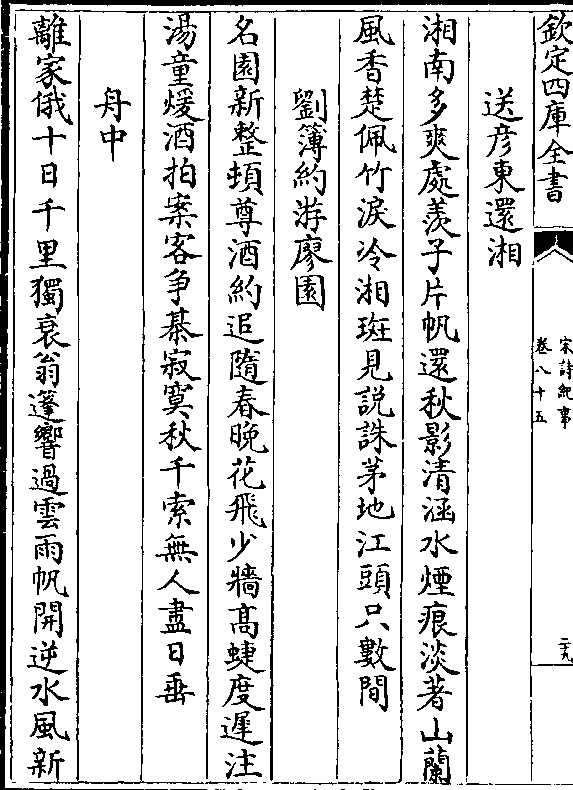 欽定四庫全書
宋詩紀事
卷八十五
二十九
送彦東還湘
湘南多爽處羨子片帆還秋影清涵水煙痕淡著山蘭
風香楚佩竹淚冷湘斑見説誅茅地江頭只數間
劉簿約游廖園
名園新整頓尊酒約追隨春晚花飛少牆髙蜨度遲注
湯童煖酒拍案客争棊寂寞秋千索無人盡日垂
舟中
離家俄十日千里獨衰翁篷響過雲雨帆開逆水風新